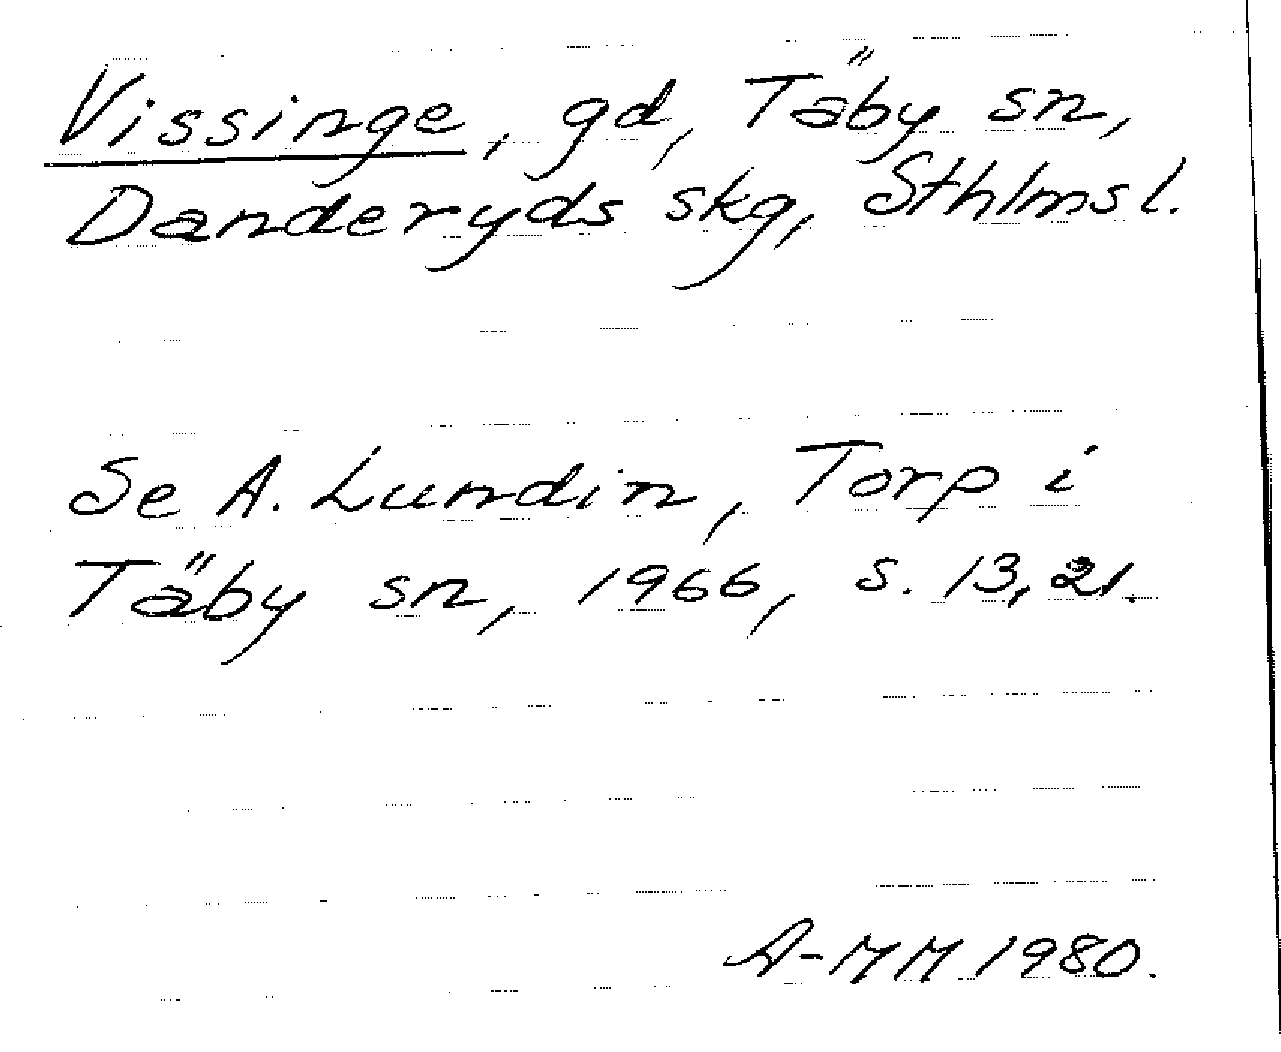 Vissinge, gd, Täby sn,
Danderyds skg, Sthlms l.
Se A. Lundin, Torp i
Täby sn, 1966, s. 13, 21.
A-MM 1980.